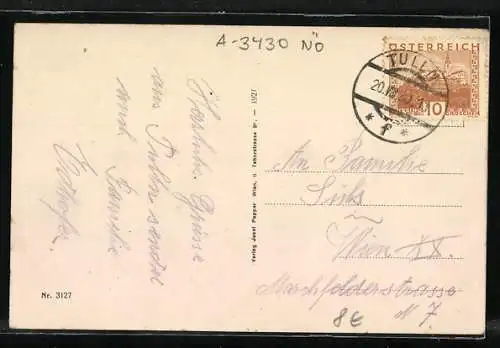 A-3430 NÖ
Herzliche Grüsse
aus Tulln sendet
Familie
Verlag Josef Popper Wien, II. Taborstrasse 1927
Nr. 3127
ÖSTERREICH
10
TULLN
20.
* f *
An Familie
in
Wien XX.
Marchfelderstrasse
N 7
8€